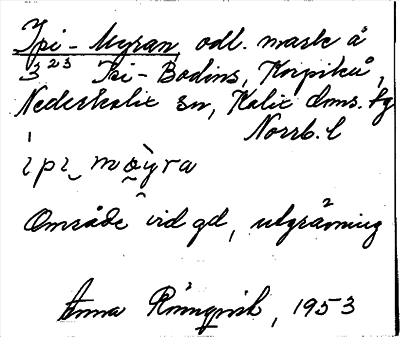 Ipi-Myran, odl. mark å
3²³ Isi-Bodins, Korpikå,
Nederkalix sn, Kalix dms. tg
Norrb. l
ipi möyra
Område vid gd, utgrävning
Anna Rönnqvist, 1953